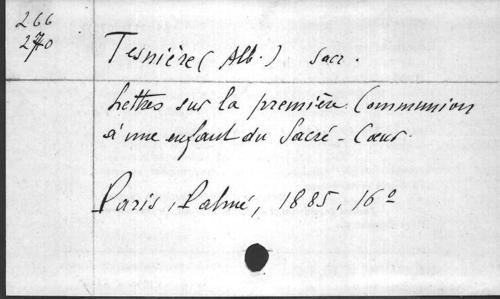 266
270
Tesnière (Alb.) Sacr.
Lettres sur la première Communion
à une enfant du Sacré-Cœur.
Paris, Palmé, 1885, 16º